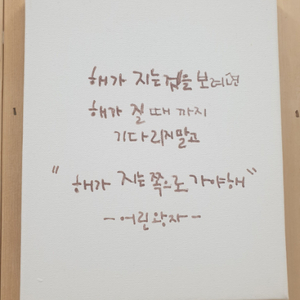 해가 지는것을 보려면
해가 질 때 까지
기다리지말고
"해가 지는쪽으로 가야해"
-어린왕자-